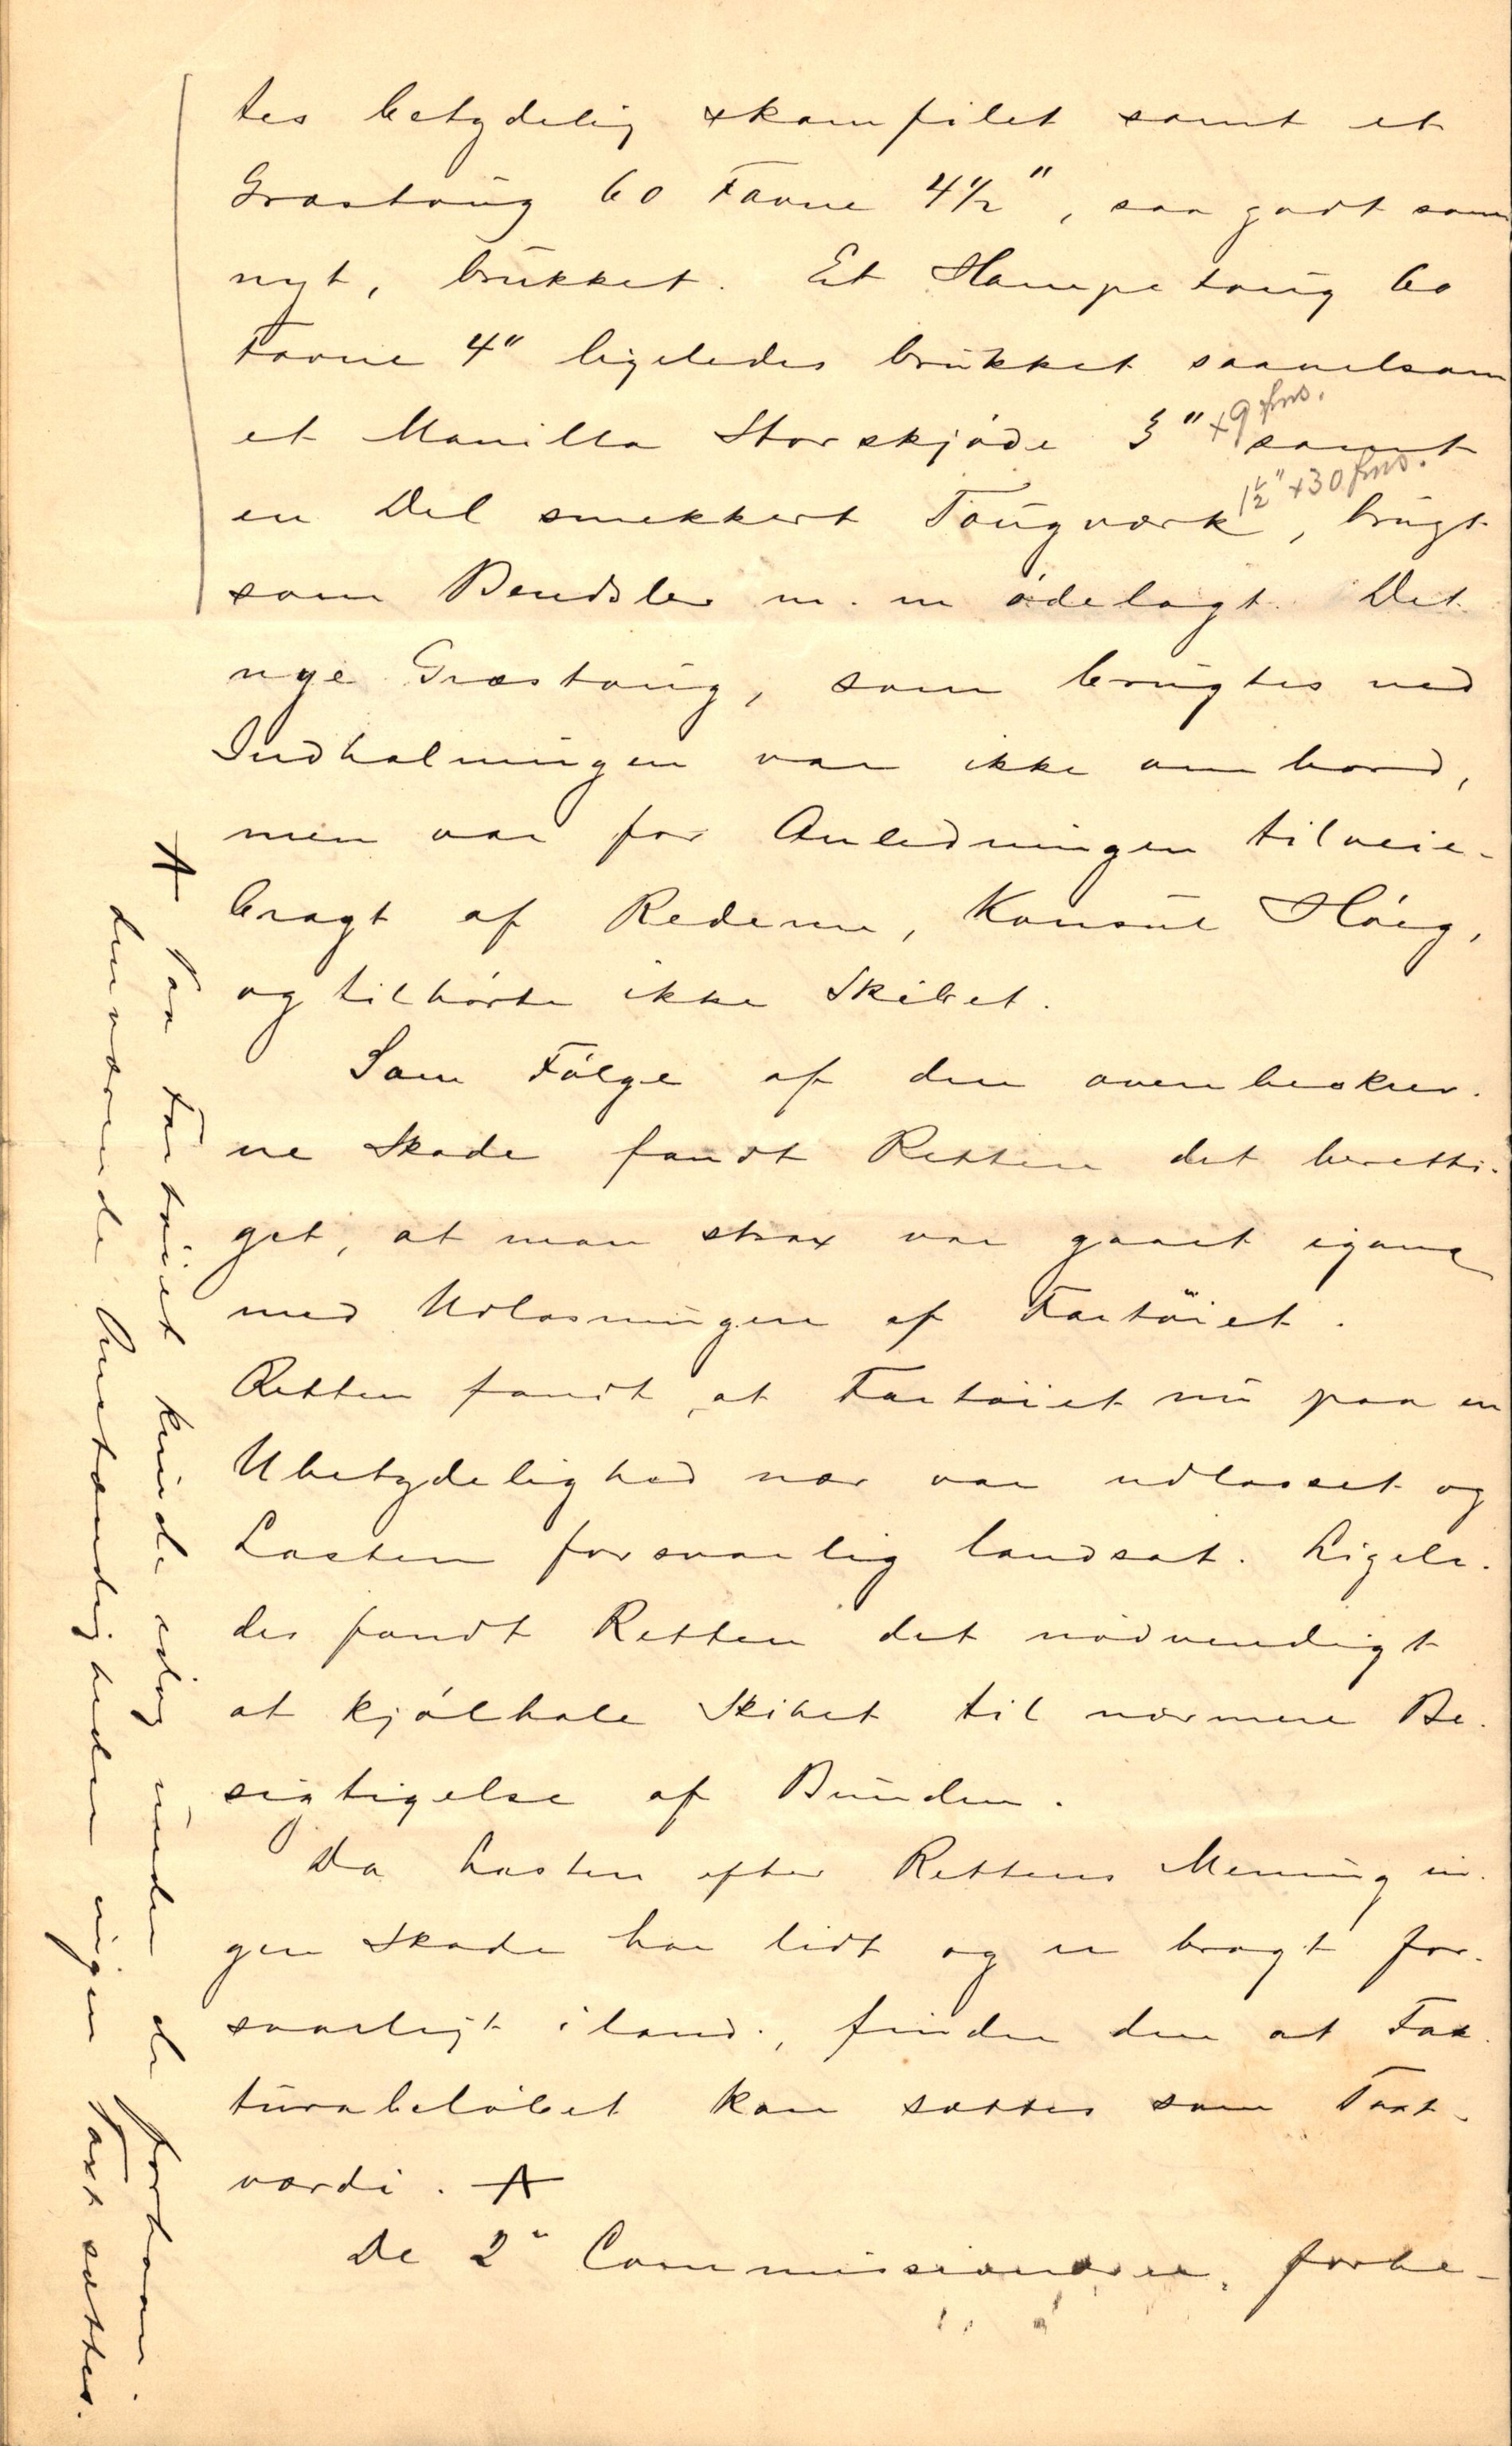 tes betydelig skamfilet samt et
Græstoug 60 Favne 4½", saa godt som
nyt, brukket. Et Hampetoug 60
Favne 4" ligeledes brukket saavelsom
et Manilla Storskjøde 3" x 9 fms. samt
en Del smekkert Tougværk 1½" x 30 fms., brugt
som Bendsler m. m ødelagt. Det
nye Græstoug, som brugtes ved
Indhalningen var ikke ombord,
men var for Anledningen tilveie-
bragt af Rederen, Konsul Høeg,
og tilhørte ikke Skibet.
Som Følge af den ovenbeskrev-
ne Skade fandt Retten det beretti-
get, at man strax var gaaet igang
med Udlosningen af Fartøiet.
Retten fandt, at Fartøiet nu paa en
Ubetydelighed nær var udlosset og
Lasten forsvarlig landsat. Ligele-
des fandt Retten det nødvendigt
at kjølhale Skibet til nærmere Be-
sigtigelse af Bunden.
Da Lasten efter Rettens Mening in-
gen Skade har lidt og er bragt for-
svarligt iland, finder den at Fak-
turabeløbet kan sættes som Taxt-
værdi. A
De 2de Commissionærer, forbe-
A Paa Fartøiet kunde idag under de forhaan-
denværende Omstændigheder ingen Taxt sættes.